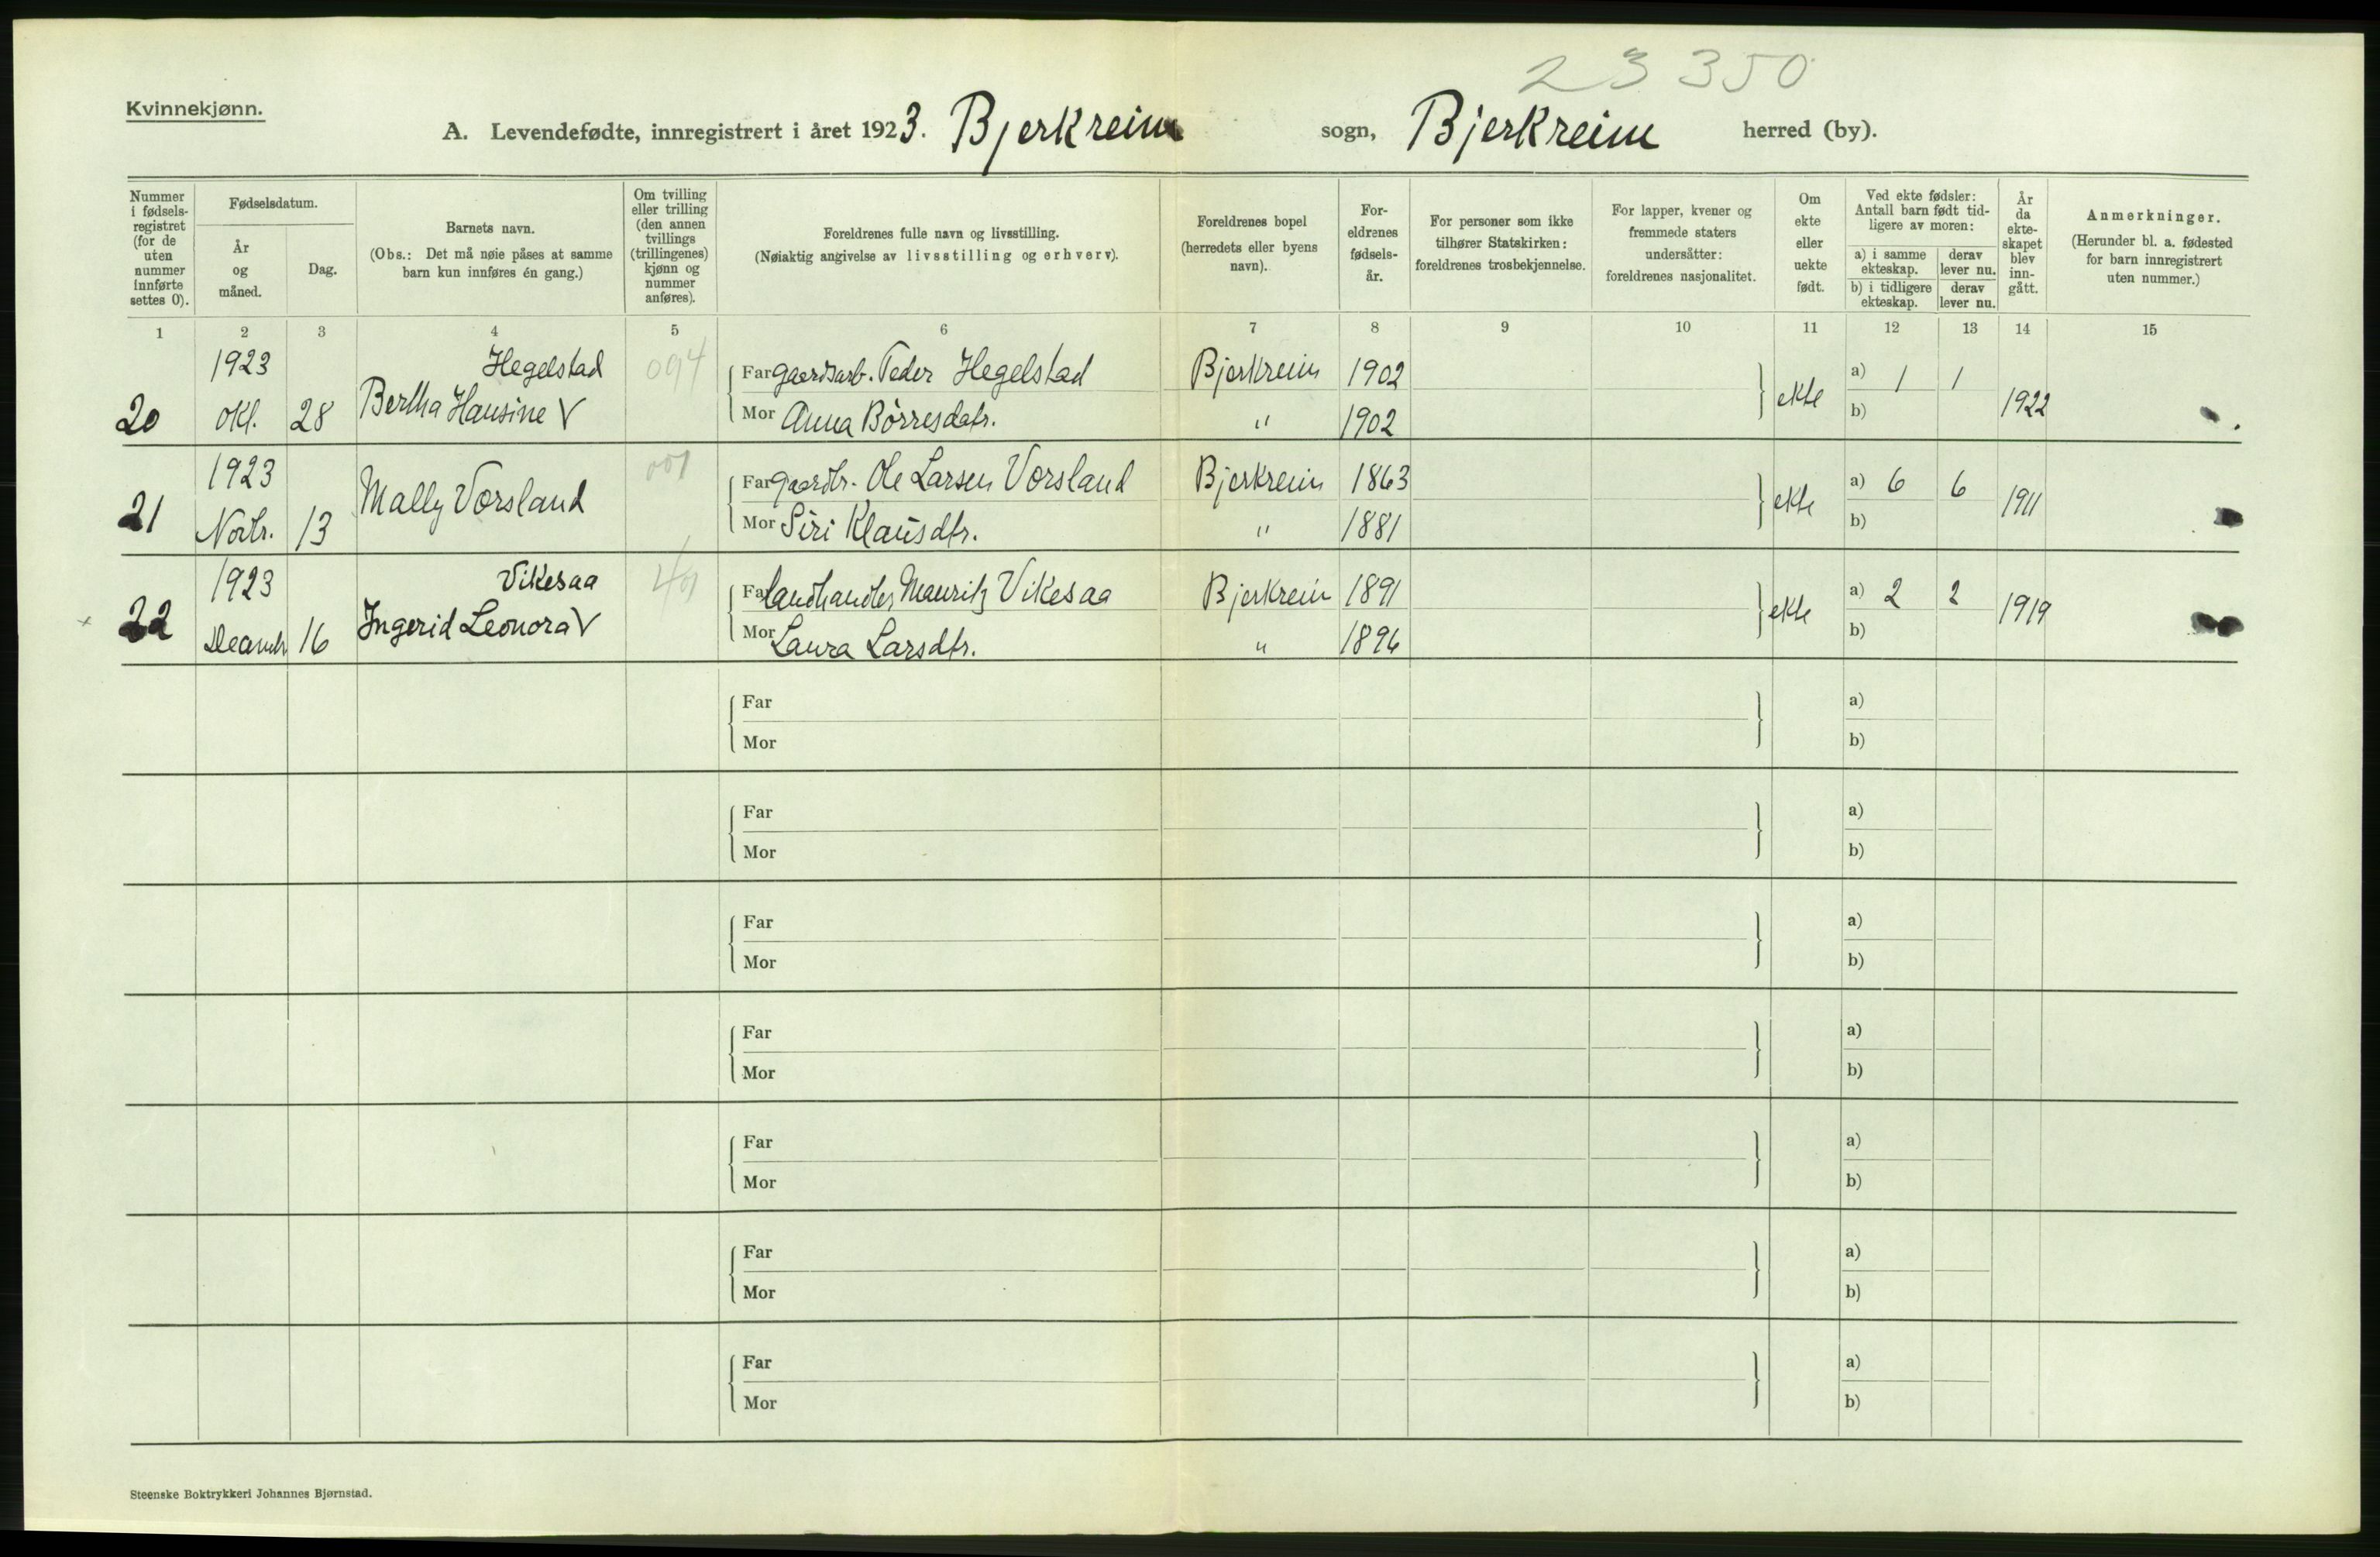 23350
Kvinnekjønn.
A. Levendefødte, innregistrert i året 1923. Bjerkreim sogn, Bjerkreim herred (by).
Nummer i fødsels-registret (for de uten nummer innførte settes 0).
Fødselsdatum.
År og måned.
Dag.
Barnets navn.
(Obs.: Det må nøie påses at samme barn kun innføres én gang.)
Om tvilling eller trilling (den annen tvillings (trillingenes) kjønn og nummer anføres).
Foreldrenes fulle navn og livsstilling.
(Nøiaktig angivelse av livsstilling og erhverv).
Foreldrenes bopel (herredets eller byens navn).
For-eldrenes fødsels-år.
For personer som ikke tilhører Statskirken: foreldrenes trosbekjennelse.
For lapper, kvener og fremmede staters undersåtter: foreldrenes nasjonalitet.
Om ekte eller uekte født.
Ved ekte fødsler: Antall barn født tid-ligere av moren:
a) i samme ekteskap.
derav lever nu.
b) i tidligere ekteskap.
derav lever nu.
År da ekte-skapet blev inn-gått.
Anmerkninger.
(Herunder bl. a. fødested for barn innregistrert uten nummer.)
1 2 3 4 5 6 7 8 9 10 11 12 13 14 15
1923 Hegelstad 094 Far gaardsarb. Peder Hegelstad Bjerkreim 1902 ekte a) 1 1 1922
20 Okt. 28 Bertha Hansine V Mor Anna Børresdatr. " 1902 b)
1923 Mally Vorsland 001 Far gaardbr. Ole Larsen Vorsland Bjerkreim 1863 ekte a) 6 6 1911
21 Novbr. 13 Mor Siri Klausdtr. " 1881 b)
1923 Vikesaa Far landhandler Mauritz Vikesaa Bjerkreim 1891 ekte a) 2 2 1919
22 16 Ingerid Leonora V Mor Laura Larsdtr. " 1896 b)
Far a)
Mor b)
Far a)
Mor b)
Far a)
Mor b)
Far a)
Mor b)
Far a)
Mor b)
Far a)
Mor b)
Far a)
Mor b)
Steenske Boktrykkeri Johannes Bjørnstad.